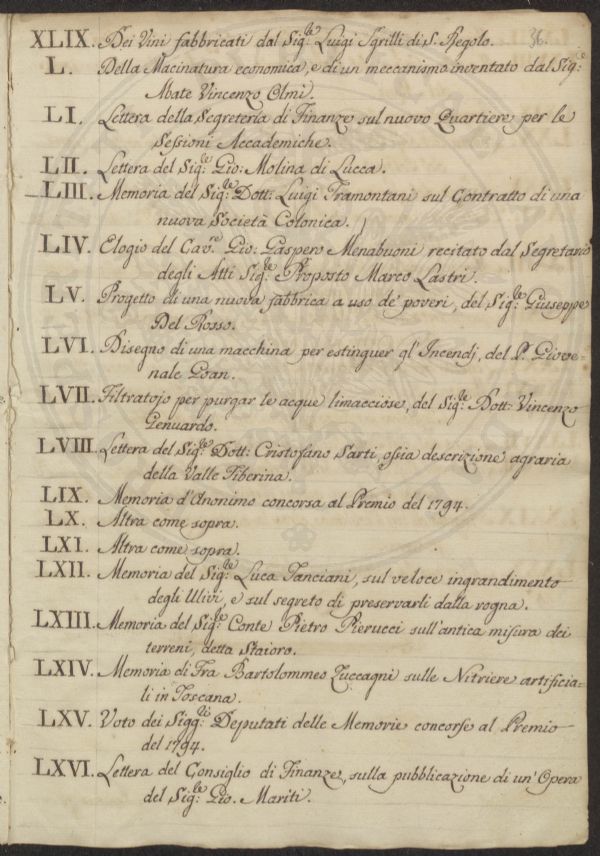 36.
XLIX. Dei Vini fabbricati dal Sig:le Luigi Sgrilli di S. Regolo.
L. Della Macinatura economica, e di un meccanismo inventato dal Sig:e
Abate Vincenzo Olmi.
LI. Lettera della Segreteria di Finanze sul nuovo Quartiere per le
Sessioni Accademiche.
LII. Lettera del Sig:le Gio: Molina di Lucca.
LIII. Memoria del Sig:le Dott: Luigi Tramontani sul Contratto di una
nuova Società Colonica.
LIV. Elogio del Cav:re Gio: Gaspero Menabuoni recitato dal Segretario
degli Atti Sig:le Proposto Marco Lastri.
LV. Progetto di una nuova fabbrica a uso de' poveri, del Sig:le Giuseppe
Del Rosso.
LVI. Disegno di una macchina per estinguer gl'Incendj, del P. Giove-
nale Goan.
LVII. Filtratojo per purgar le acque limacciose, del Sig:le Dott: Vincenzo
Genuardo.
LVIII. Lettera del Sig:le Dott: Cristofano Sarti, ossia descrizione agraria
della Valle Tiberina.
LIX. Memoria d'Anonimo concorsa al Premio del 1794.
LX. Altra come sopra.
LXI. Altra come sopra.
LXII. Memoria del Sig:le Luca Tanciani, sul veloce ingrandimento
degli Ulivi, e sul segreto di preservarli dalla rogna.
LXIII. Memoria del Sig:le Conte Pietro Pierucci sull'antica misura dei
terreni, detta Staioro.
LXIV. Memoria di Fra Bartolommeo Zuccagni sulle Nitriere artificia-
li in Toscana.
LXV. Voto dei Sigg:ri Deputati delle Memorie concorse al Premio
del 1794.
LXVI. Lettera del Consiglio di Finanze, sulla pubblicazione di un'Opera
del Sig:le Gio. Mariti.